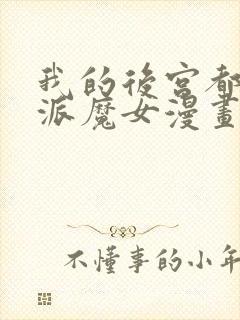 我的後宮都
派魔女漫畫
不懂事的小年